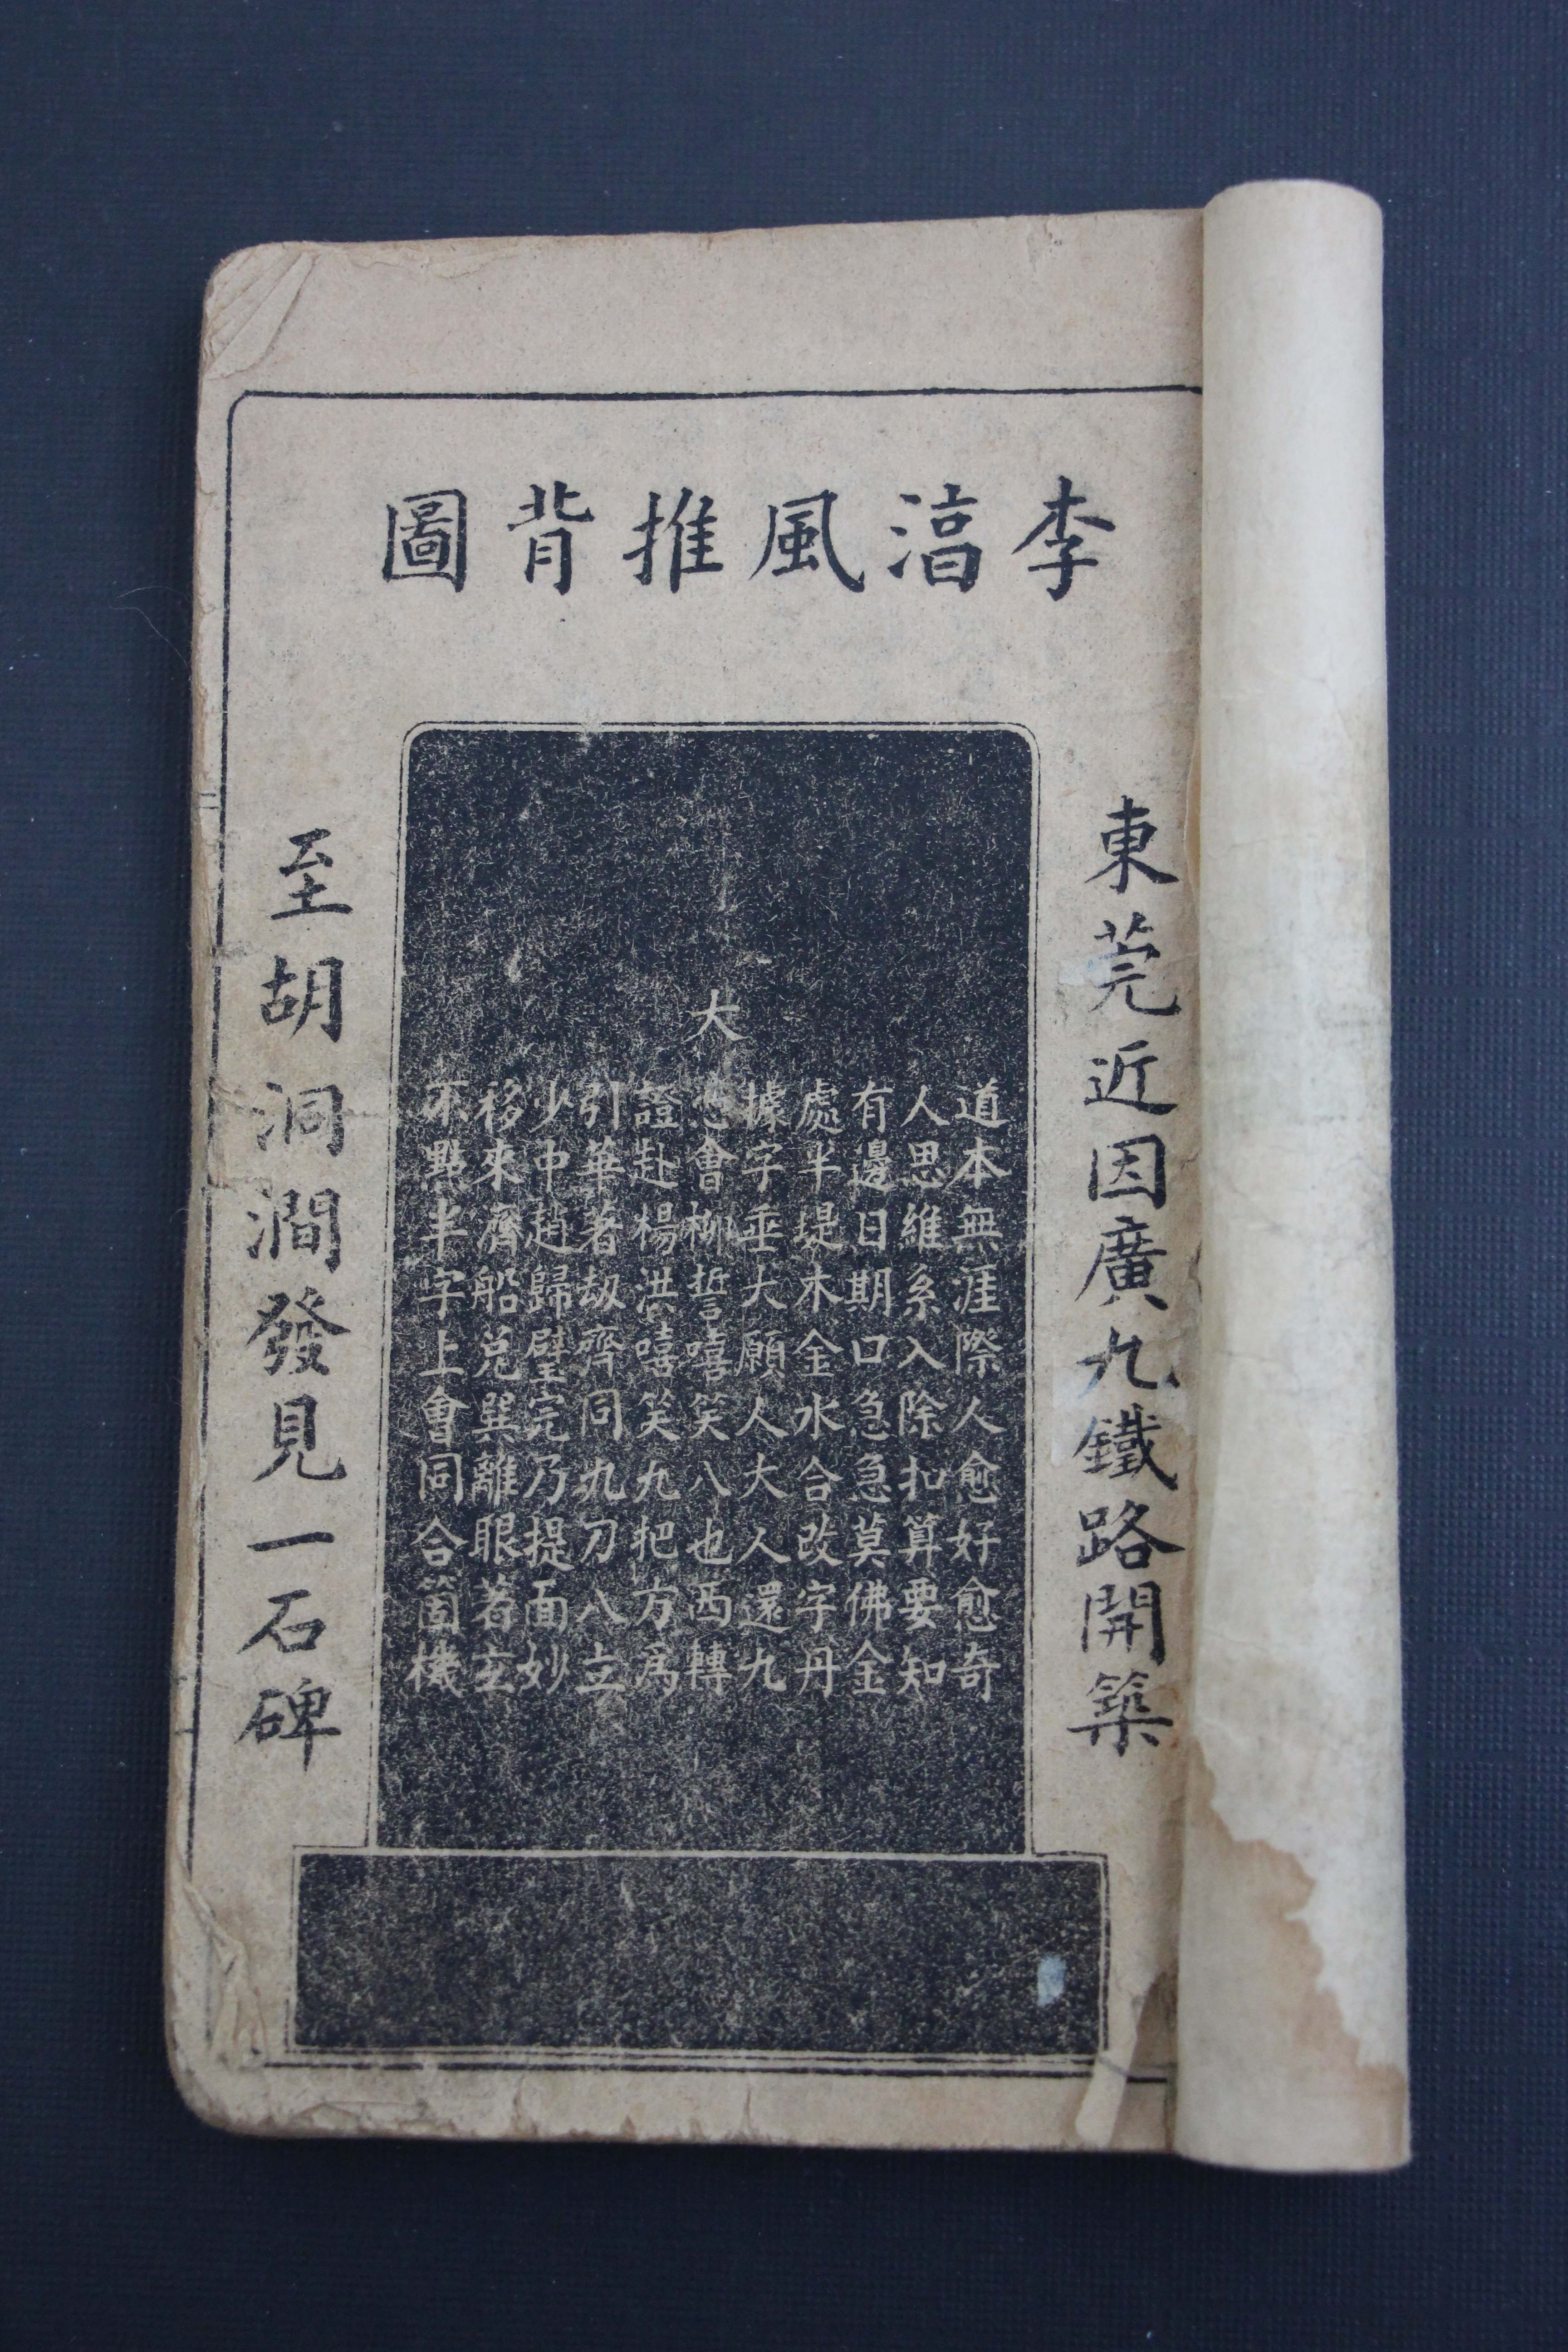 李湻風推背圖
東莞近因廣九鐵路開築
道本無涯際人愈好愈奇
人思維系入除扣算要知
有邊日期口急急莫佛金
處半堤木金水合改字丹
據字垂大願人大人還九
大會柳誓嘻笑八也西轉
證赴楊洪嘻笑九把方爲
引華著劫齊同九刀八立
少中趙歸璧完乃提面妙
移來濟船兌巽離眼著玄
不點半字上會同合箇機
至胡洞澗發見一石碑